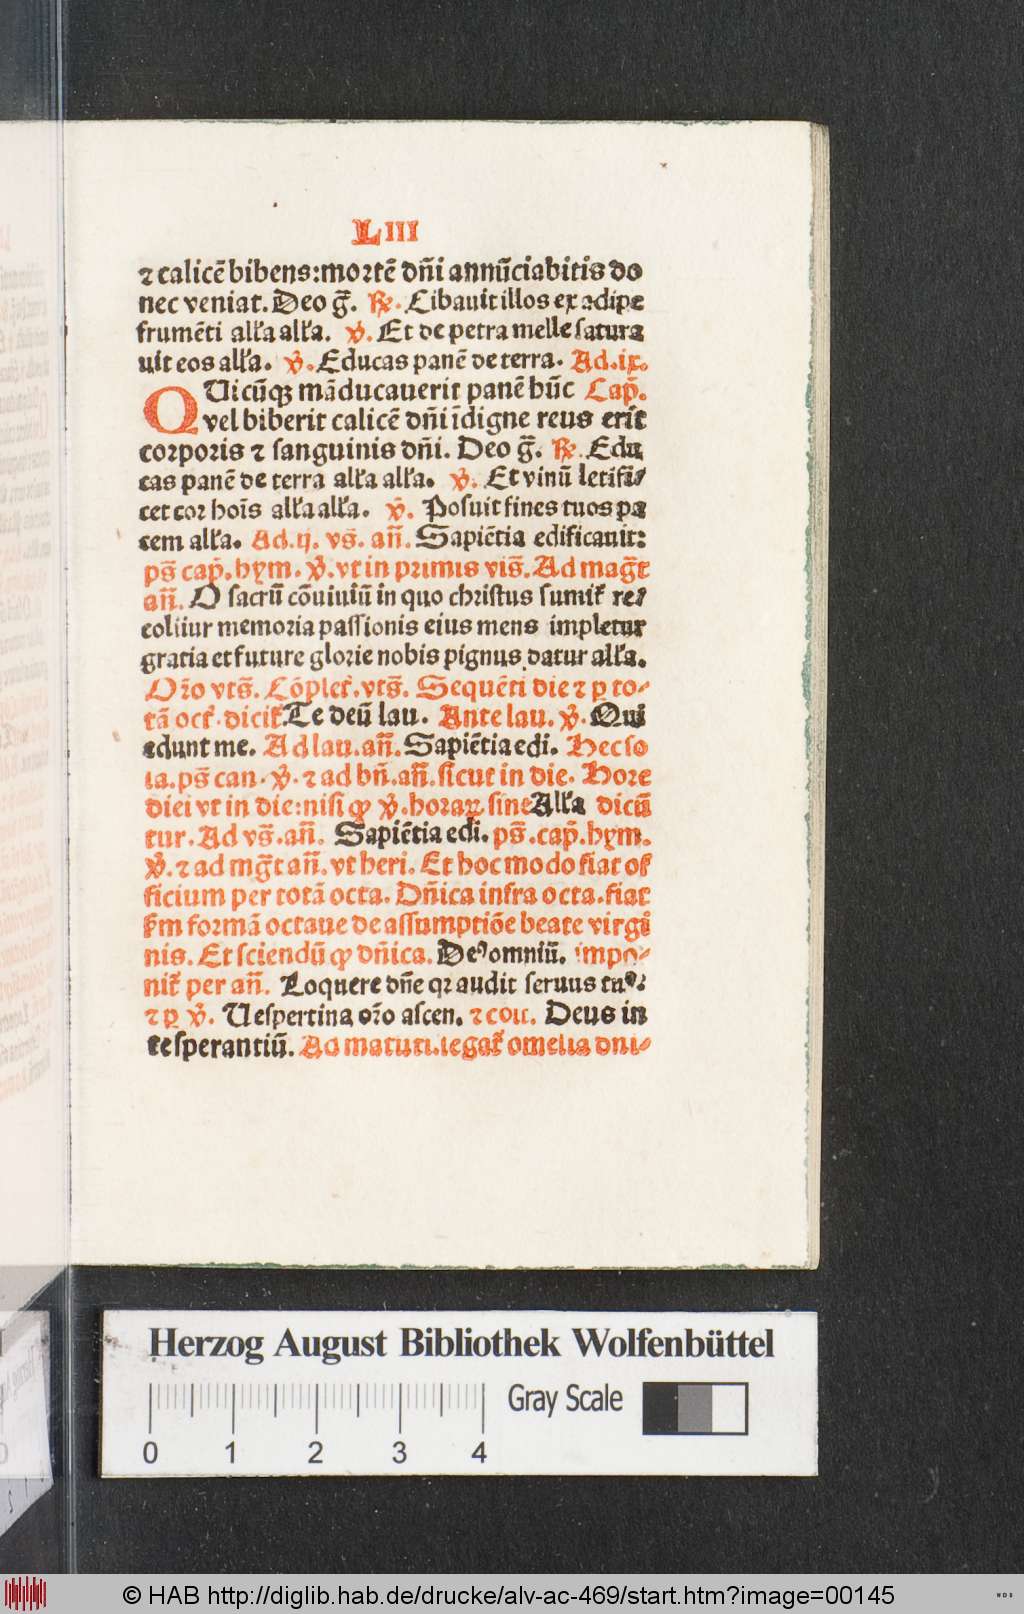 LIII
⁊ calicē bibens: mortē dn̄i annūciabitis do
nec veniat. Deo gr̄. ℟. Cibauit illos ex adipe
frumēti all'a all'a. ℣. Et de petra melle satura
uit eos all'a. ℣. Educas panē de terra. Ad. ix.
QUicūqꝫ māducauerit panē hūc Cap̄.
vel biberit calicē dn̄i īdigne reus erit
corporis ⁊ sanguinis dn̄i. Deo gr̄. ℟. Edu
cas panē de terra all'a all'a. ℣. Et vinū letifi⸗
cet cor hoīs all'a all'a. ℣. Posuit fines tuos pa
cem all'a. Ad. ij. vs̄. an̄. Sapiētia edificauit:
ps̄ cap̄. hym. ℣. vt in primis vis̄. Ad magt̄
an̄. O sacrū cōuiuiū in quo christus sumit᷑ re⸗
colitur memoria passionis eius mens impletur
gratia et future glorie nobis pignus datur all'a.
Or̄o vts̄. Cōplet᷑. vts̄. Sequēti die ⁊ ꝑ to⸗
tā oct᷑. dicit᷑. Te deū lau. Ante lau. ℣. Qui
edunt me. Ad lau. an̄. Sapiētia edi. Hec so
la. ps̄ can. ℣. ⁊ ad bn̄. an̄. sicut in die. Hore
diei vt in die: nisi ꝙ ℣. horaꝝ sine All'a dicū
tur. Ad vs̄. an̄. Sapiētia edi. ps̄. cap̄. hym.
℣. ⁊ ad mgt̄ an̄. vt heri. Et hoc modo fiat of
ficium per totā octa. Dn̄ica infra octa. fiat
s̄m formā octaue de assumptiōe beate virgi
nis. Et sciendū ꝙ dn̄ica. De⁹ omniū. impo⸗
nit᷑ per an̄. Loquere dn̄e qꝛ audit seruus tu⁹:
⁊ ꝑ ℣. Uespertina or̄o ascen. ⁊ con. Deus in
te sperantiū. Ad matuti. legat᷑ omelia dni⸗
Herzog August Bibliothek Wolfenbüttel
Gray Scale
0 1 2 3 4
© HAB http://diglib.hab.de/drucke/alv-ac-469/start.htm?image=00145